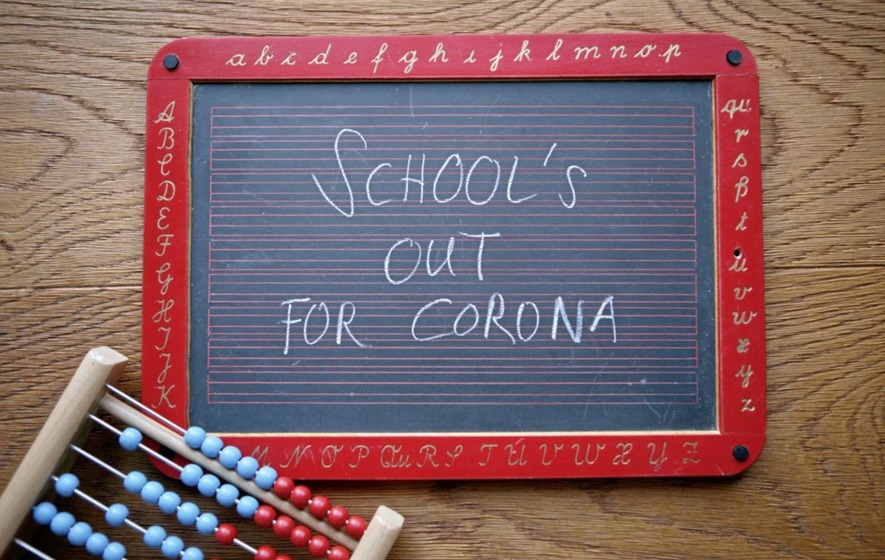 a b c d e f g h i j k l m n o p
SCHOOL'S
OUT
FOR CORONA
A
B
C
D
E
F
G
H
I
J
K
qu
r
s
ß
t
u
v
w
x
y
z
M N O P Qu R S T U V W X Y Z